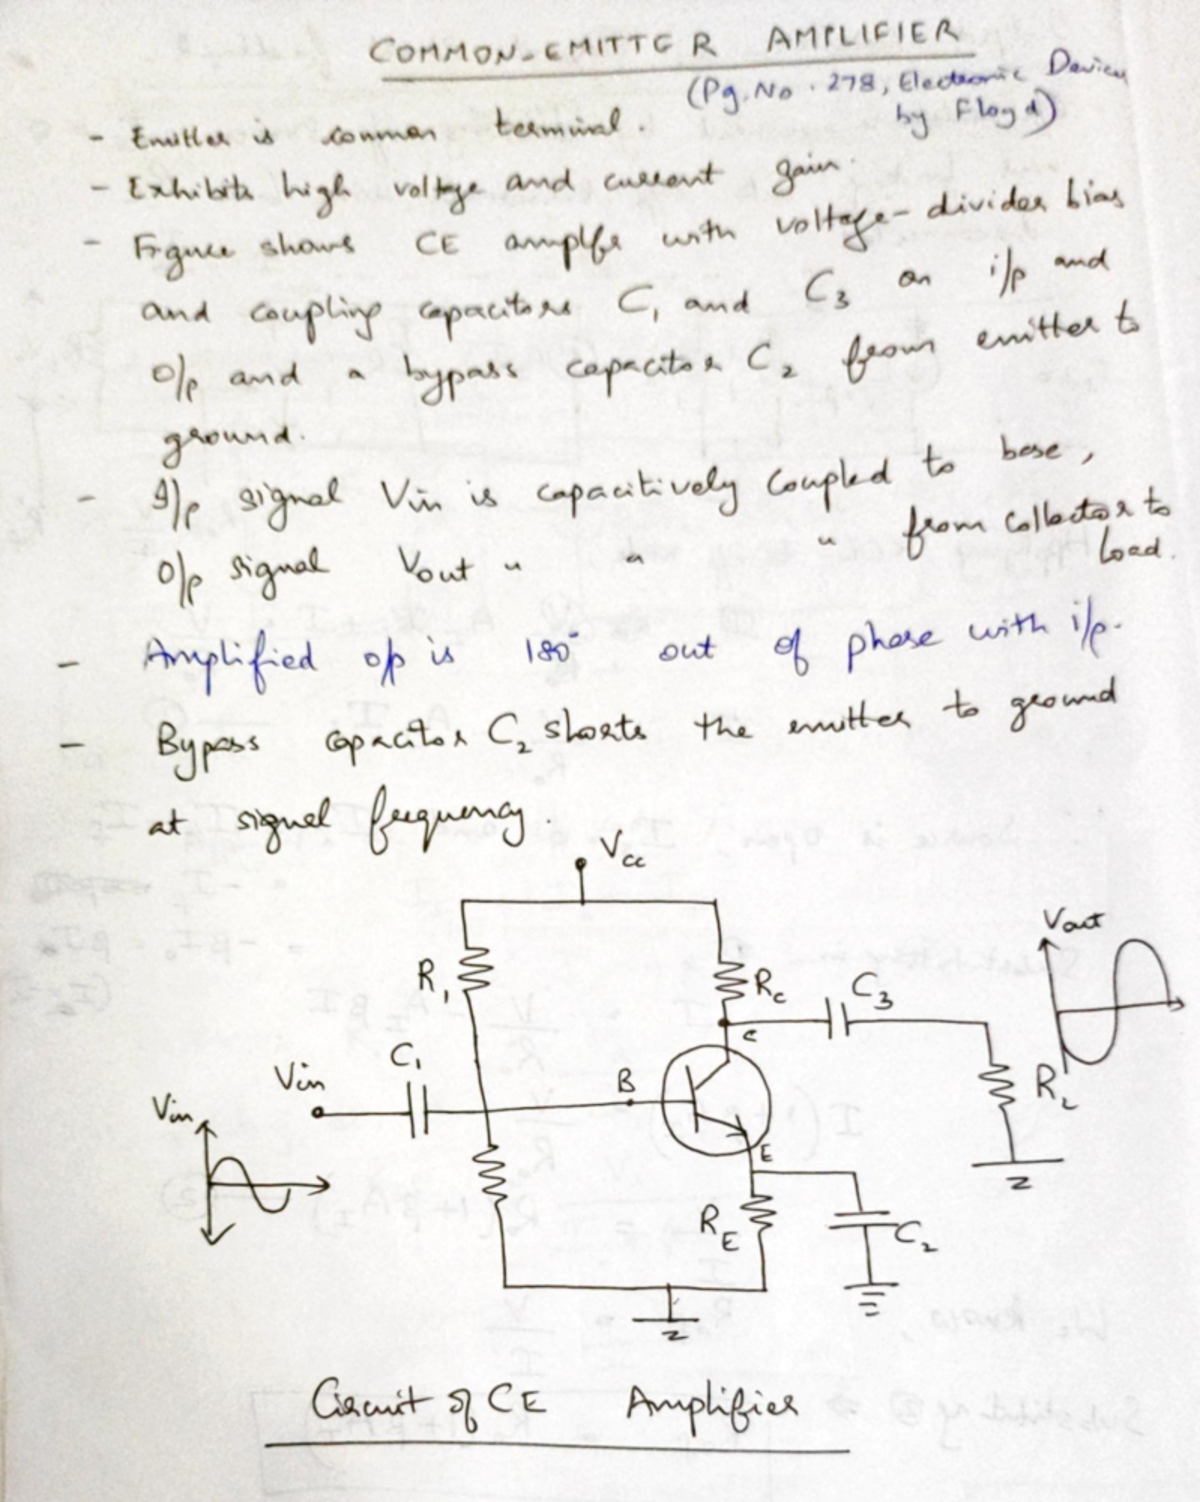 COMMON-EMITTER AMPLIFIER
(Pg.No. 278, Electronic Devices
by Floyd)
- Emitter is common terminal.
- Exhibits high voltage and current gain.
- Figure shows CE amplfr with voltage-divider bias
and coupling capacitors C₁ and C₃ on i/p and
o/p and a bypass capacitor C₂ from emitter to
ground.
- I/p signal Vin is capacitively coupled to base,
O/p signal Vout " " " from collector to
load.
- Amplified o/p is 180° out of phase with i/p.
- Bypass capacitor C₂ shorts the emitter to ground
at signal frequency.
Vcc
Vout
R₁
Rc
C₃
C
C₁
Vin
B
RL
Vin
E
RE
C₂
Circuit of CE Amplifier